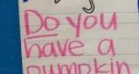 Do you
have a
pumpkin